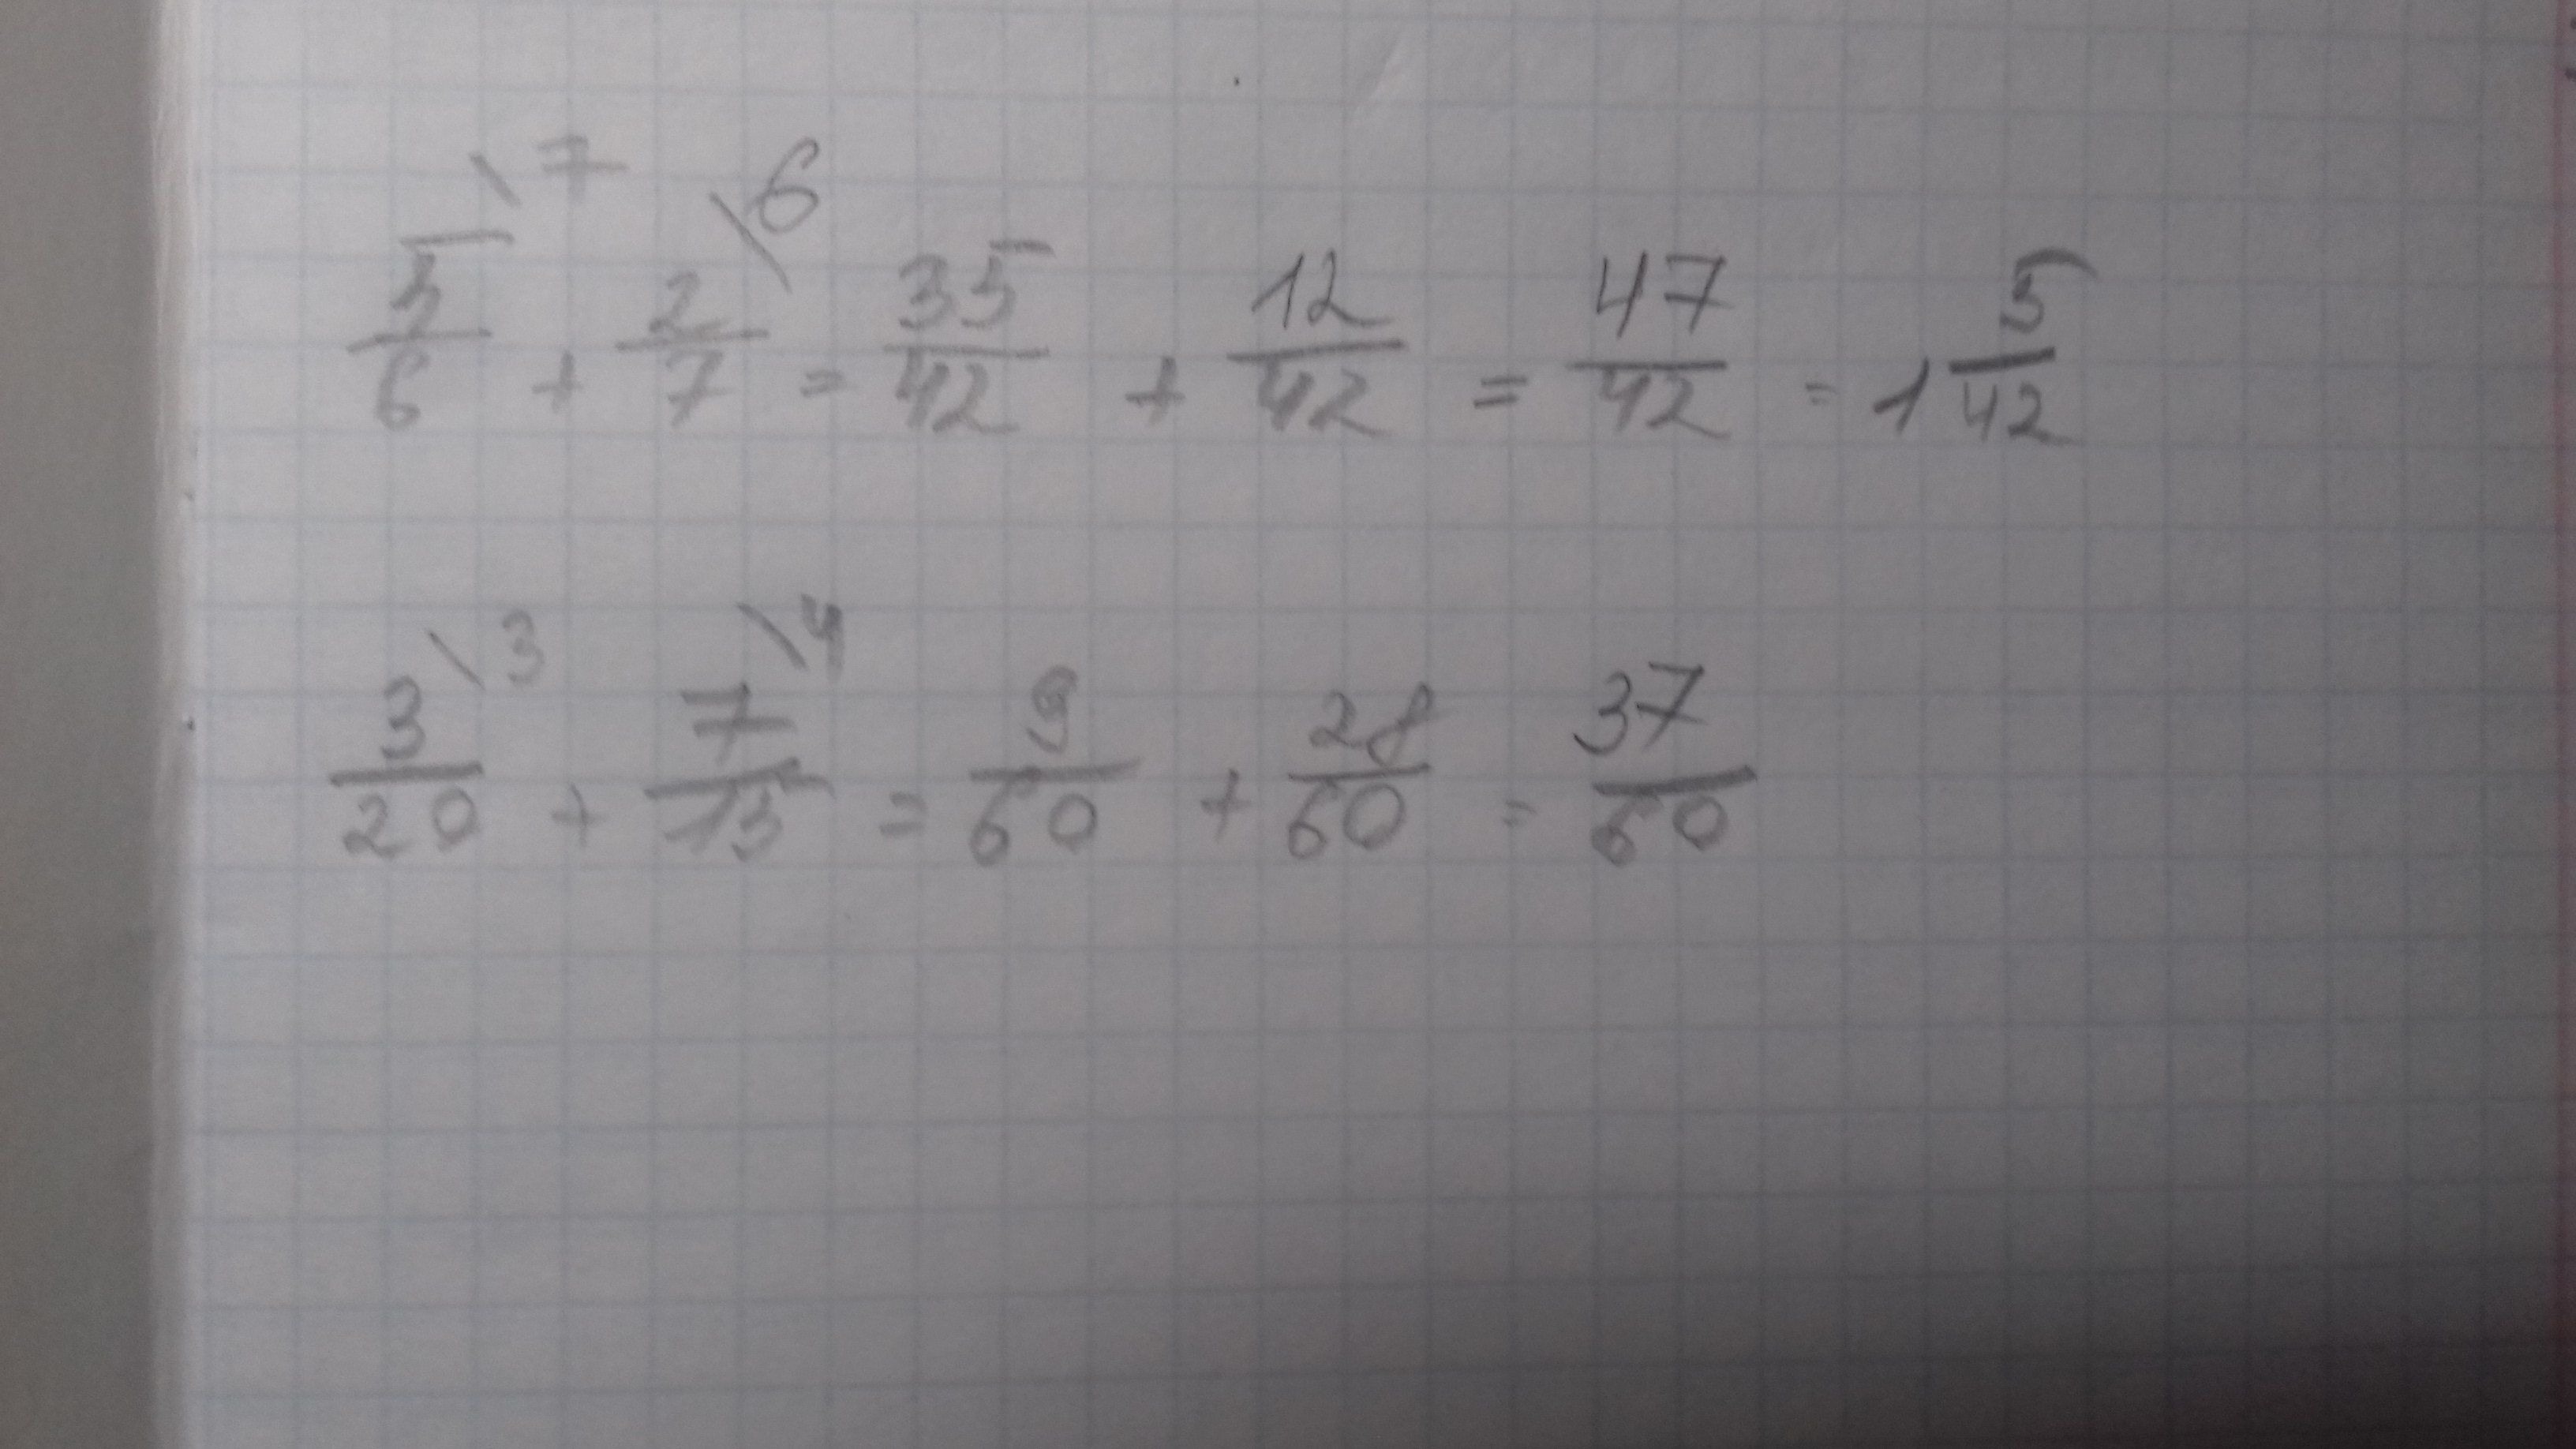 5/6 \7 + 2/7 \6 = 35/42 + 12/42 = 47/42 = 1 5/42
3/20 \3 + 7/15 \4 = 9/60 + 28/60 = 37/60